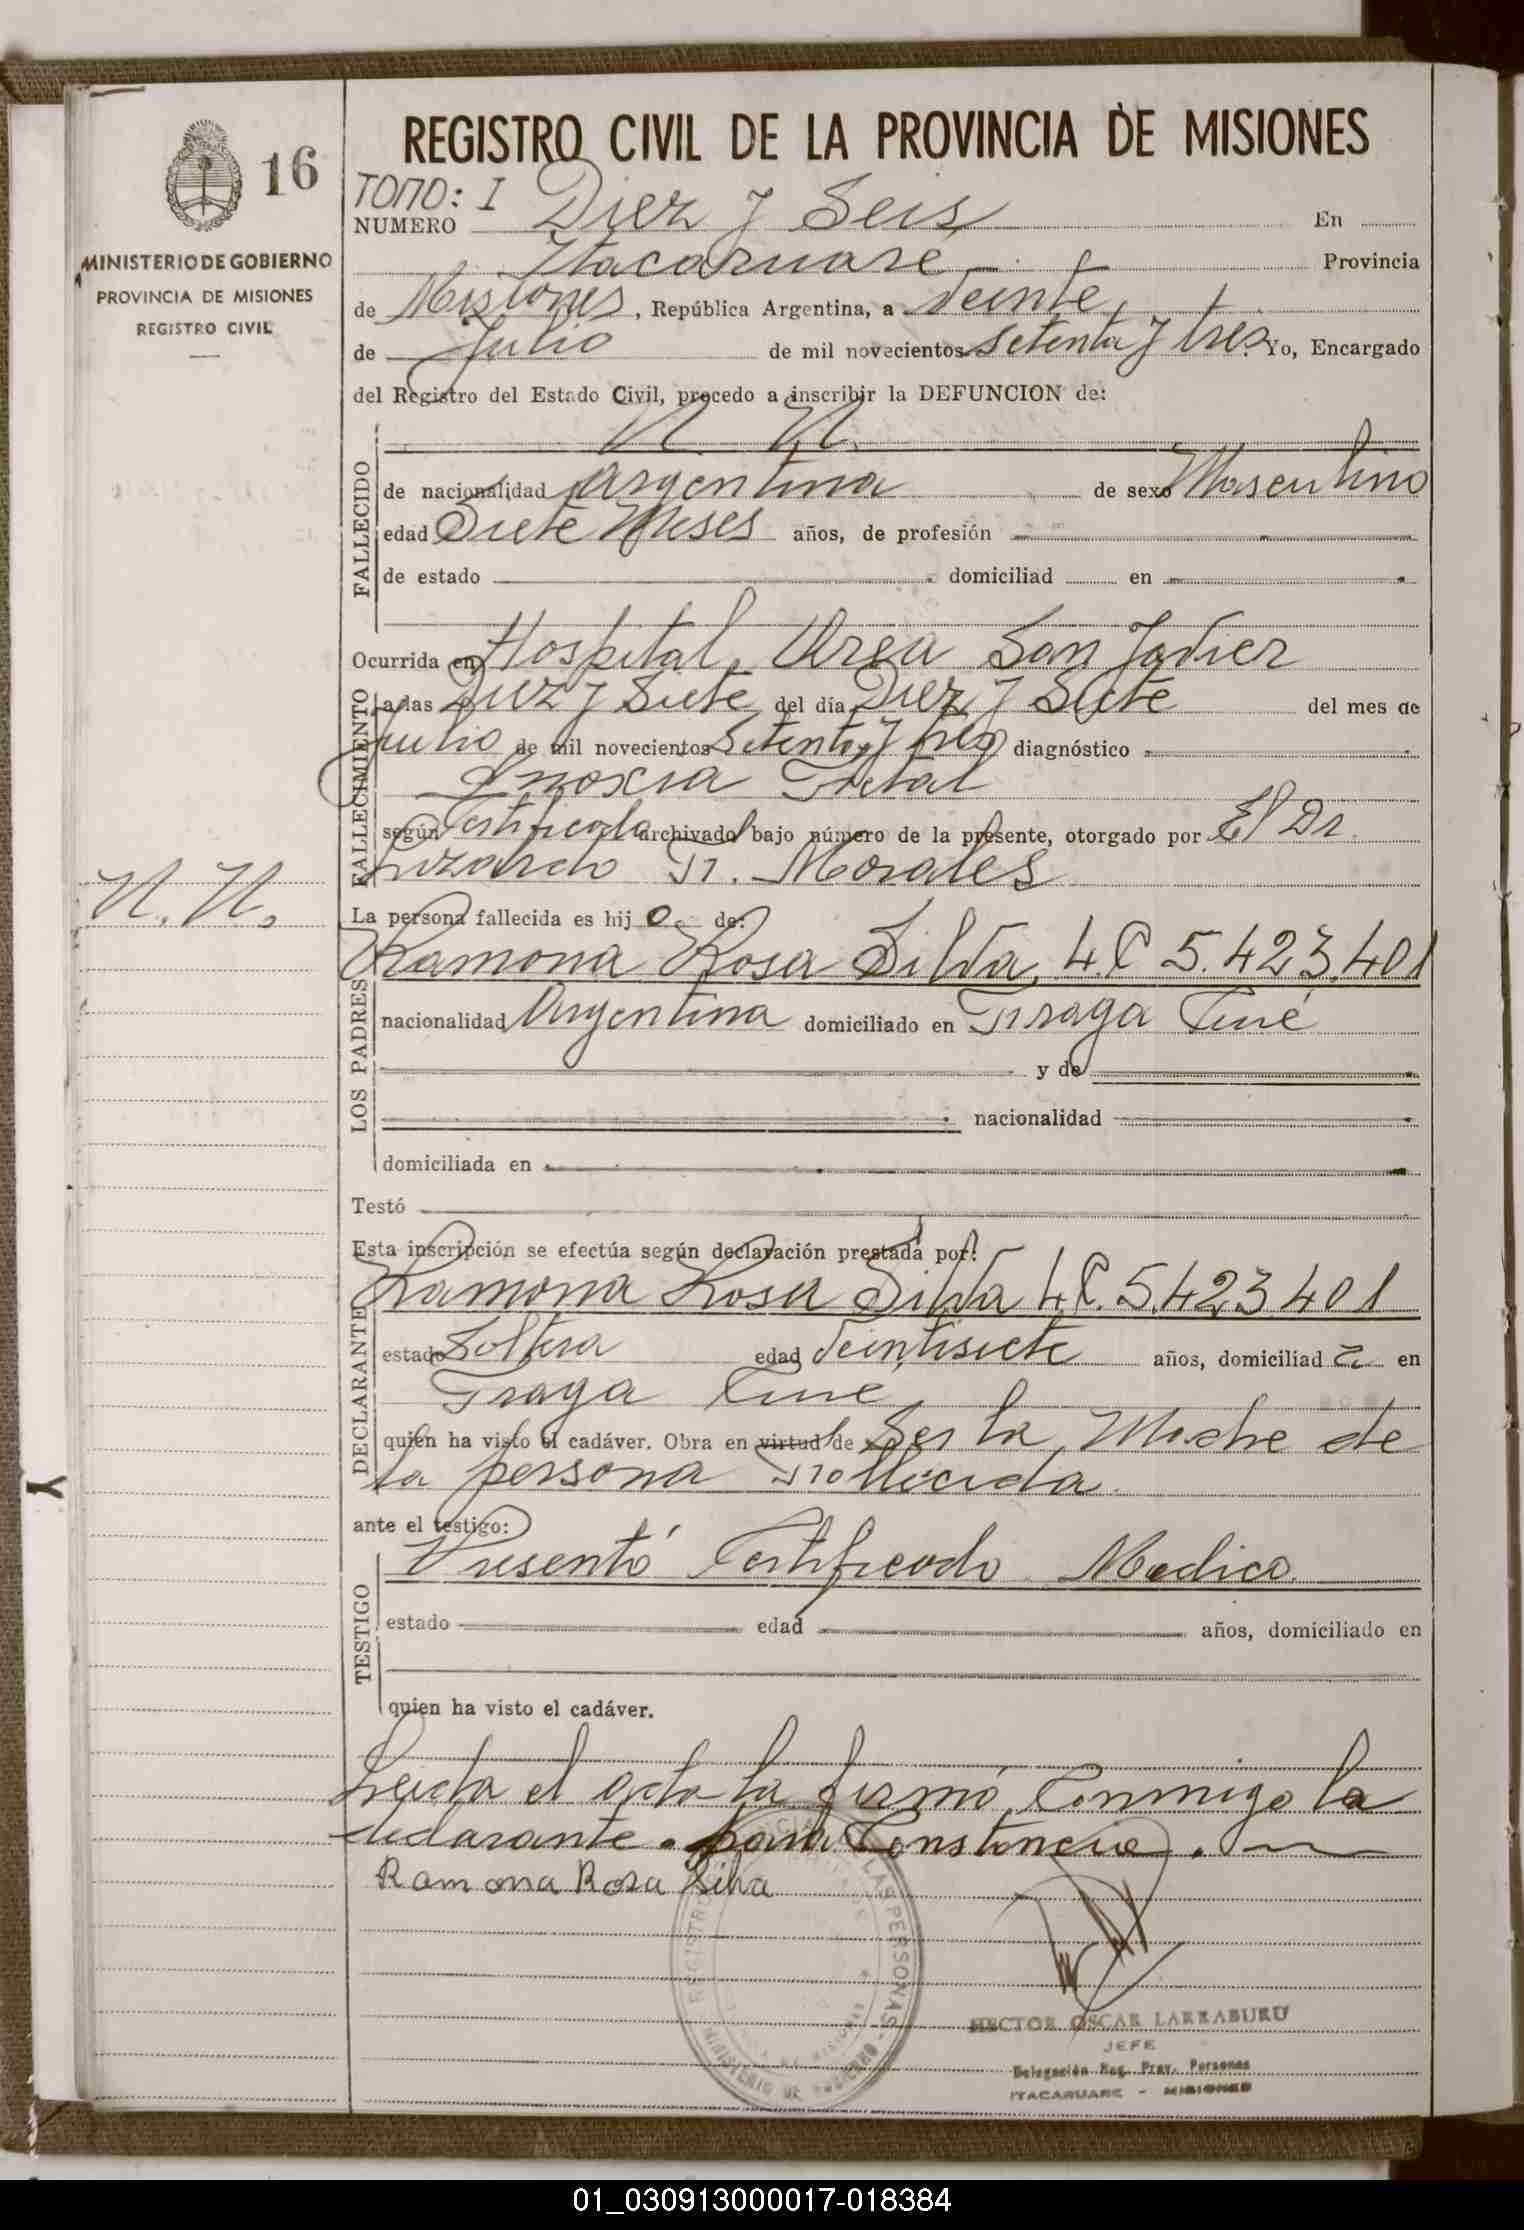 REGISTRO CIVIL DE LA PROVINCIA DE MISIONES
16
MINISTERIO DE GOBIERNO
PROVINCIA DE MISIONES
REGISTRO CIVIL
TOMO: I
NUMERO Diez y Seis En
Itacaruaré Provincia
de Misiones, República Argentina, a Veinte
de Julio de mil novecientos setenta y tres. Yo, Encargado
del Registro del Estado Civil, procedo a inscribir la DEFUNCION de:
N. N.
FALLECIDO
de nacionalidad Argentina de sexo Masculino
edad Siete Meses años, de profesión
de estado domiciliad en
Ocurrida en Hospital Area San Javier
FALLECIMIENTO
a las Diez y Siete del día Diez y Siete del mes de
Julio de mil novecientos Setenta y tres diagnóstico
Anoxia Fetal
según Certificado archivado bajo número de la presente, otorgado por El Dr.
Lizardo F. Morales
N. N.
La persona fallecida es hijo de:
LOS PADRES
Ramona Rosa Silva, L.C 5.423.401
nacionalidad Argentina domiciliado en Fraga Cué
y de
nacionalidad
domiciliada en
Testó
Esta inscripción se efectúa según declaración prestada por:
DECLARANTE
Ramona Rosa Silva L.C. 5.423.401
estado Soltera edad Veintisiete años, domiciliada en
Fraga Cué
quien ha visto el cadáver. Obra en virtud de Ser la Madre de
la persona Fallecida.
ante el testigo:
TESTIGO
Presentó Certificado Medico.
estado edad años, domiciliado en
quien ha visto el cadáver.
Leida el acta la firmó Conmigo la
declarante. para Constancia.
Ramona Rosa Silva
HECTOR OSCAR LARRABURU
JEFE
Delegación Reg. Prov. Personas
ITACARUARE - MISIONES
01_030913000017-018384